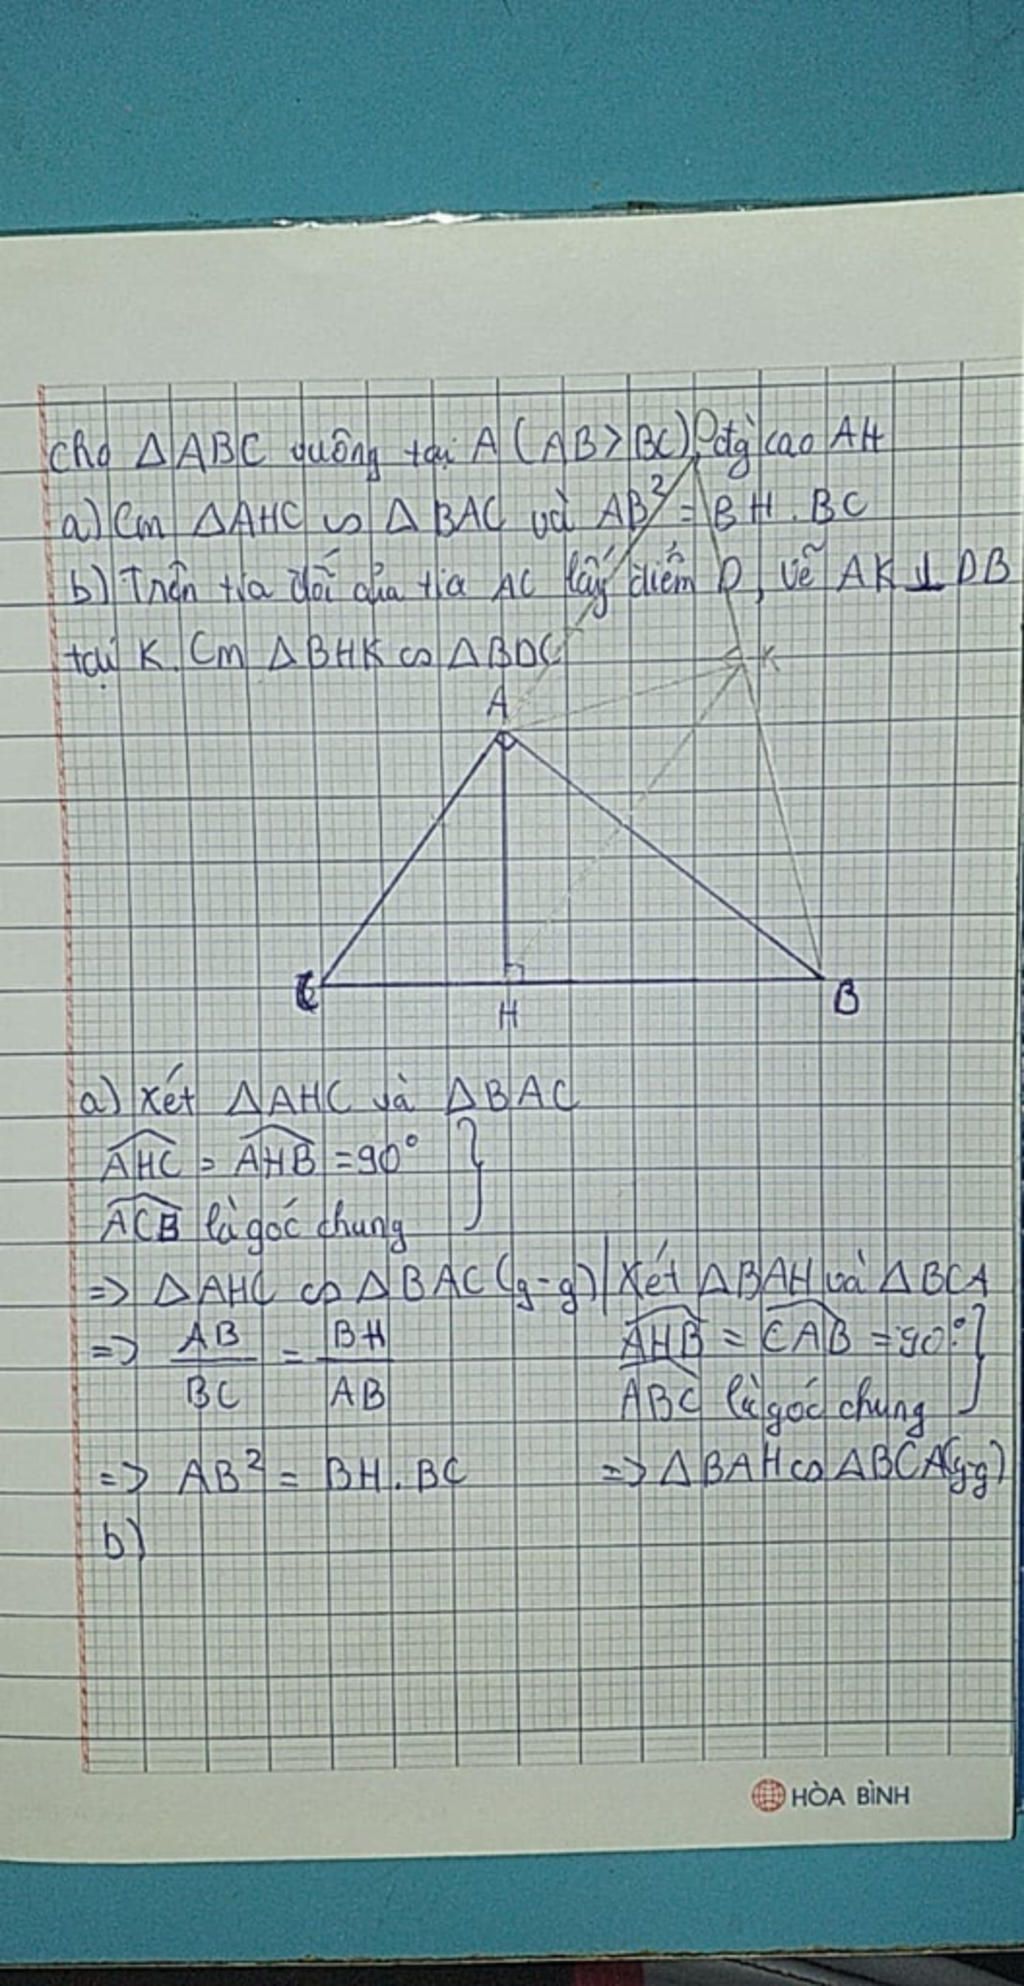 Cho △ABC vuông tại A (AB>BC), đg cao AH
D
a) Cm △AHC ∽ △BAC và AB² = BH.BC
b) Trên tia đối của tia AC lấy điểm D, vẽ AK⊥DB
tại K. Cm △BHK ∽ △BDC
K
A
C
B
H
a) Xét △AHC và △BAC
AHC = AHB = 90° }
ACB là góc chung
=> △AHC ∽ △BAC (g-g) | Xét △BAH và △BCA
=> AB/BC = BH/AB
AHB = CAB = 90° }
ABC là góc chung
=> AB² = BH.BC => △BAH ∽ △BCA (g-g)
b)
HÒA BÌNH